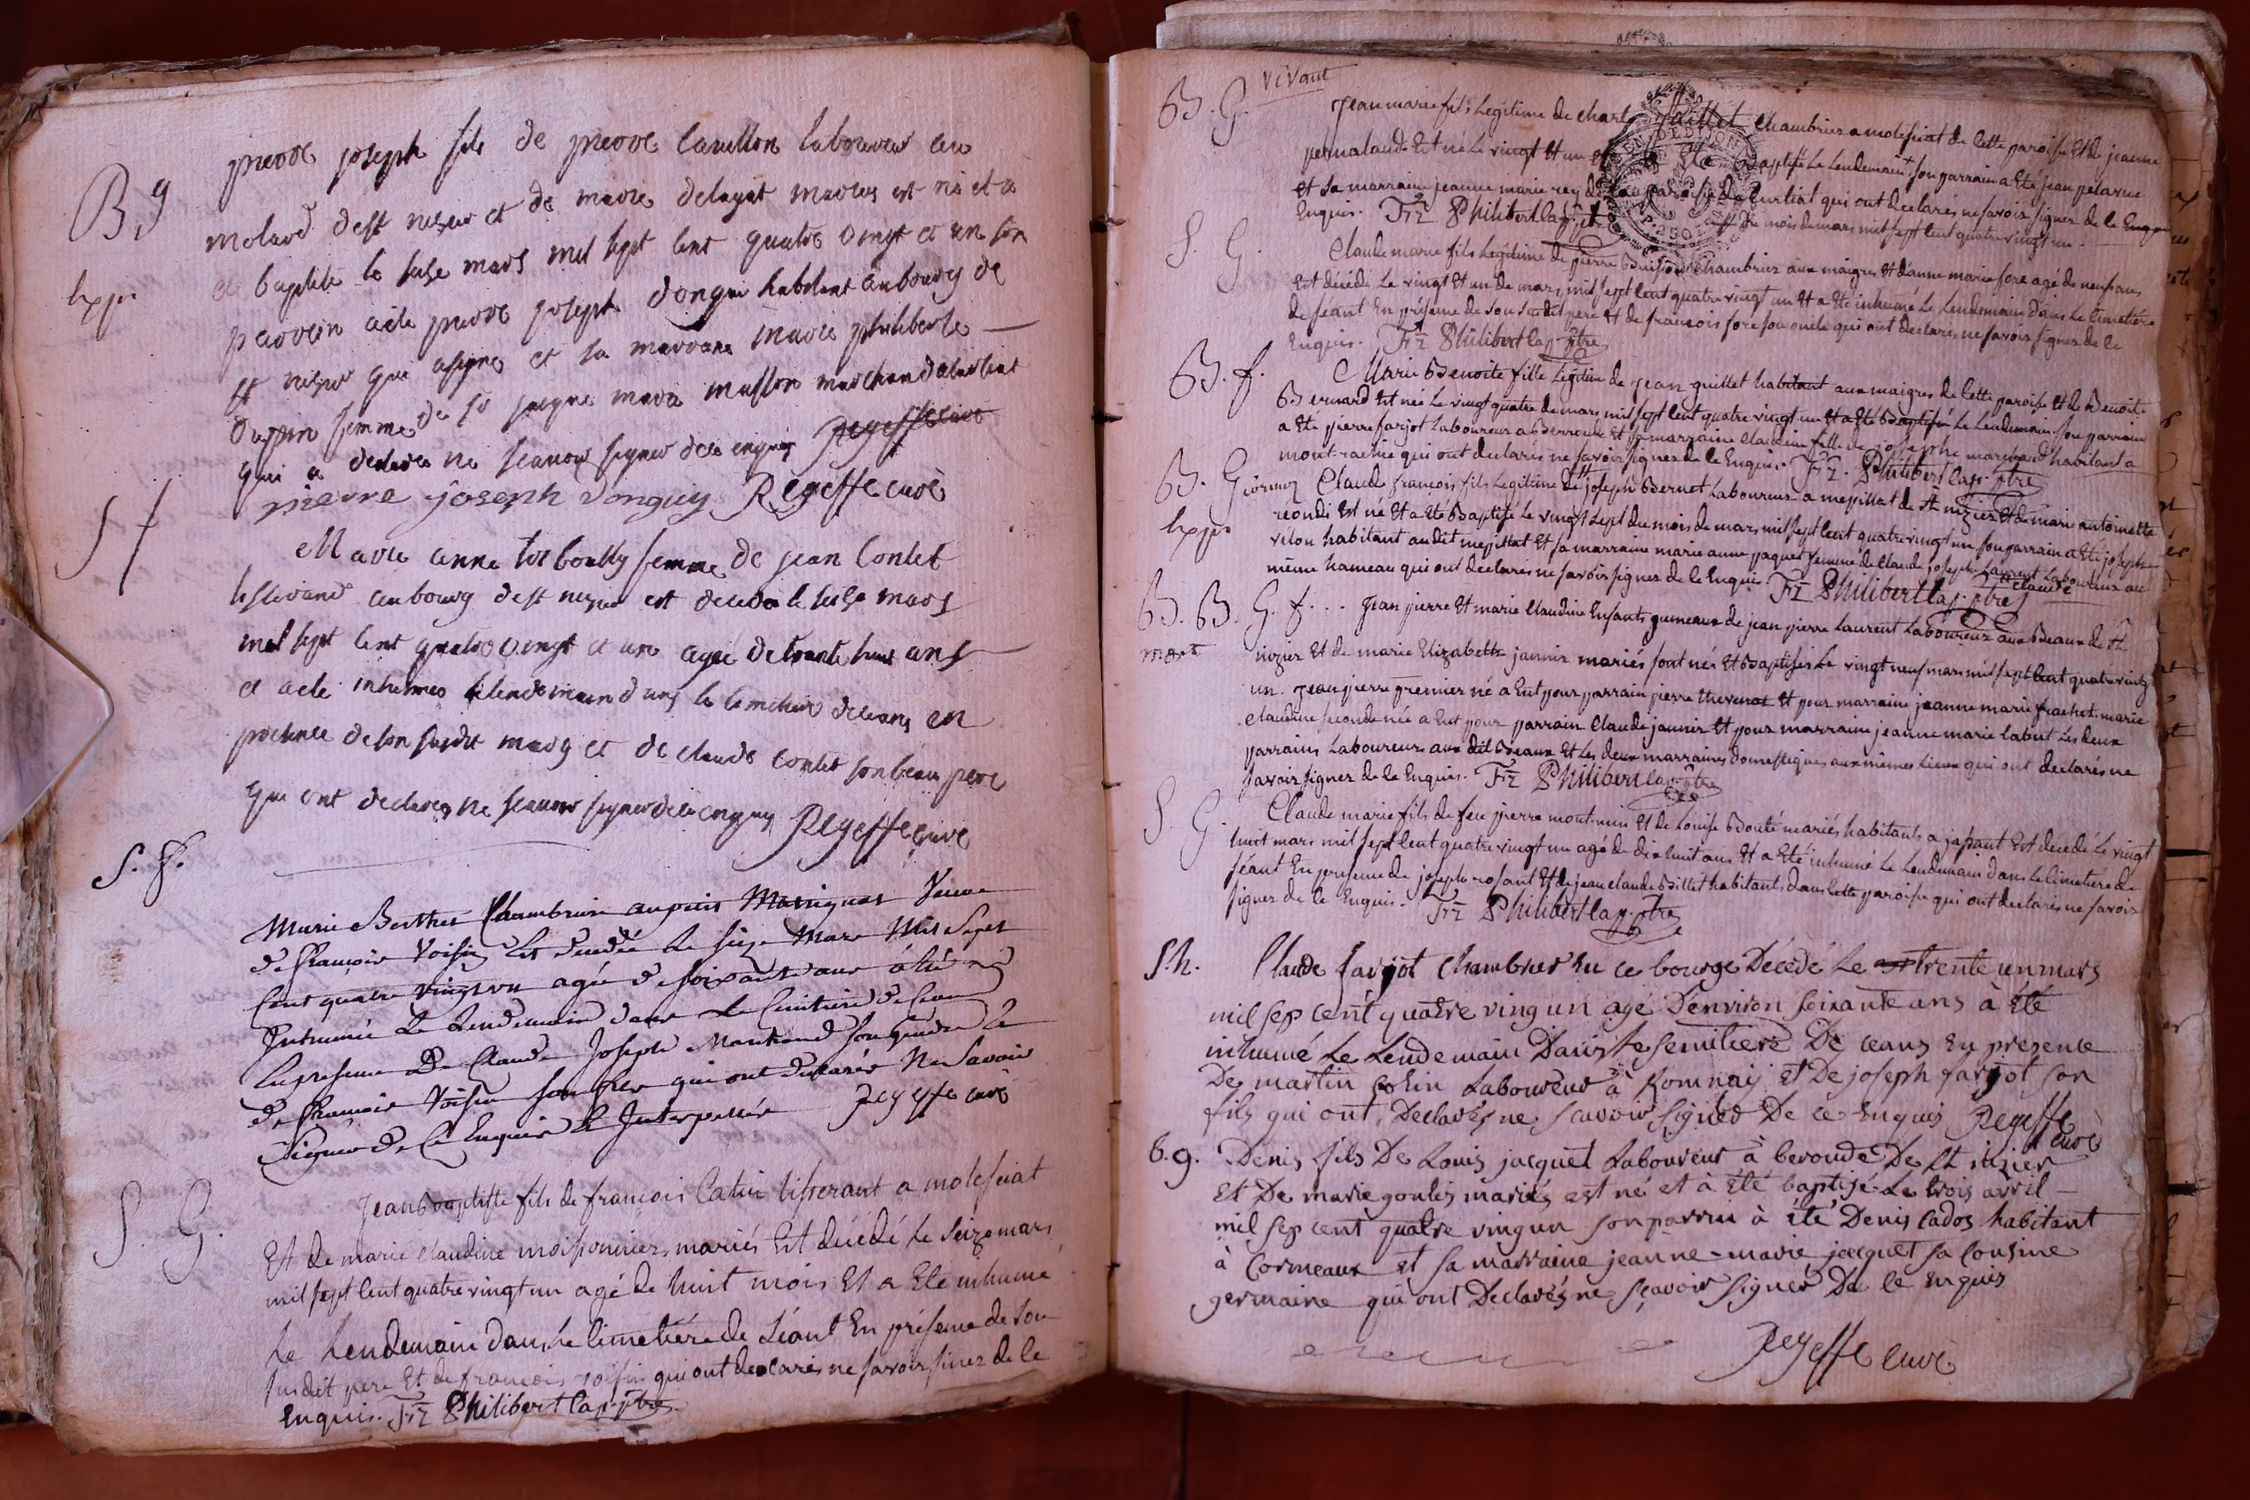 B g
pierre joseph fils de pierre Carillon laboureur au
molard dest nizier et de marie delayat maries est né et a
été baptisé le seise mars mil sept cent quatre vingt et un son
hxpr
parrein a été pierre joseph donguy habitant au bourg de
st nizier qui a signé et sa marraine marie philiberte
femme de jo marchand
qui a declaré ne scavoir signer de ce enquis Regeffe curé
pierre joseph donguy Regeffe curé
S f
Marie anne femme de jean Contet
tisserand au bourg dest nizier est decedée le seise mars
mil sept cent quatre vingt et un agée de trante huit ans
et a été inhumée le lendemain dans le cimetiere de ceans en
presence de son susdit mary et de claude contet son beau pere
qui ont declarés ne scavoir signer de ce enquis Regeffe curé
S. f.
Marie Berthet Chambriere au petit Montignat Veuve
de François Voisin Est decedée Le seize Mars Mil Sept
Cent quatre vingt un agée de soixante ans a été
Inhumée Le Lendemain dans Le Cimitiere de Ceans
En presence De Claude Joseph Marchand son gendre &
de François Voisin son fils qui ont declarés Ne Savoir
Signer de Ce Enquis & Interpellés Regeffe curé
S. G.
Jean Baptiste fils de françois Catin tisserant a molefeiat
Et de marie claudine moissonnier mariés Est décédé Le Seize mars
mil sept Cent quatre vingt un agé de huit mois Et a Eté inhumé
Le Lendemain Dans Le Cimetiére de Séant En présence de Son
susdit pere Et de francois voisin qui ont declarés ne savoir siner de Ce
Enquis. Frz Philibert Cap. ptre
B. G. vivant
Jean marie fils Legitime de Charle Chambrier a molefeiat de Cette paroisse Et de jeanne
pernalaude Est né Le vingt Et un Et a Eté Baptisé Le Lendemain + son parrain a Eté jean pelarue
Et Sa marraine jeanne marie rey de la paroisse de Curtiat qui ont declarés ne savoir signer de Ce
Enquis. Frz Philibert Cap. ptre + Du mois de mars mil sept Cent quatre vingt un
S. G.
Claude marie fils Legitime de pierre Buisson Chambrier aux maigres Et d'anne marie fore agé de neuf ans
Est décédé Le vingt Et un de mars mil sept Cent quatre vingt un Et a Eté inhumé Le Lendemain Dans Le Cimetiére
de séant En présence de son susdit pere Et de francois fore son oncle qui ont declarés ne savoir signer de Ce
Enquis. Frz Philibert Cap. ptre
B. f.
Marie Benoite fille Légitime de jean guillet habitant aux maigres de Cette paroisse Et de Benoite
Bernard Est née Le vingt quatre de mars mil sept Cent quatre vingt un Et a Eté Baptisée Le Lendemain son parrain
a Eté pierre farjot Laboureur a Berroude Et sa marraine claudine fille de josephe marchand habitant a
mont racine qui ont declarés ne savoir signer de Ce Enquis. Frz. Philibert Cap. ptre
B. G
hxpr
Claude françois fils Legitime de joseph Bernet Laboureur a mepillat de St nizier Et de marie antoinette
reonde Est né Et a Eté Baptisé Le vingt Sept du mois de mars mil sept Cent quatre vingt un son parrain a Eté joseph
vilon habitant audit mepillat Et sa marraine marie anne paquet femme de Claude joseph Laurent Laboureur au
même hameau qui ont declarés ne savoir signer de Ce Enquis. Frz Philibert Cap. ptre
claude
B. B. G. f...
mort
Jean pierre Et marie Claudine Enfants gumeaux de jean pierre Laurent Laboureur aux Beaux de St
nizier Et de marie Elizabette janin mariés sont nés Et Baptisés Le vingt neuf mars mil sept Cent quatre vingt
un. Jean pierre premier né a Eut pour parrain pierre thevenot Et pour marraine jeanne marie frachet. marie
Claudine seconde née a Eut pour parrain Claude jannin Et pour marraine jeanne marie Cabut Les deux
parrains Laboureurs aux dit Beaux Et Les deux marraines Domestiques aux mêmes Lieux qui ont declarés ne
savoir signer de Ce Enquis. Frz Philibert Cap. ptre
S. G.
Claude marie fils de feu pierre montmin Et de Louise Bonté mariés habitants a japant Est décédé Le vingt
huit mars mil sept Cent quatre vingt un agé de dix huit ans Et a Eté inhumé Le Lendemain dans Le Cimetiére de
séant En présence de joseph rosant Et de jean claude Billet habitants dans Cette paroisse qui ont declarés ne savoir
signer de Ce Enquis. Frz Philibert Cap. ptre
S. h.
Claude farjot Chambrier En ce bourge Décedé Le trente un mars
mil sep cent quatre ving un agé D'environ soixante ans à été
inhumé Le Lendemain Dans le semitiere De ceans En presence
De martin Colin Laboureur à Romnay et De joseph farjot son
fils qui ont Declarés ne scavoir signer De ce Enquis Regeffe curé
B. g.
Denis fils De Louis jacquet Laboureur à beroude De St nizier
Et De marie goulis mariés est né et à été baptisé Le trois avril
mil sep cent quatre ving un son parrin à été Denis Cados habitant
à Cormeaux et sa marraine jeanne-marie jacquet sa cousine
germaine qui ont Declarés ne sçavoir signer De Ce Enquis
Regeffe curé